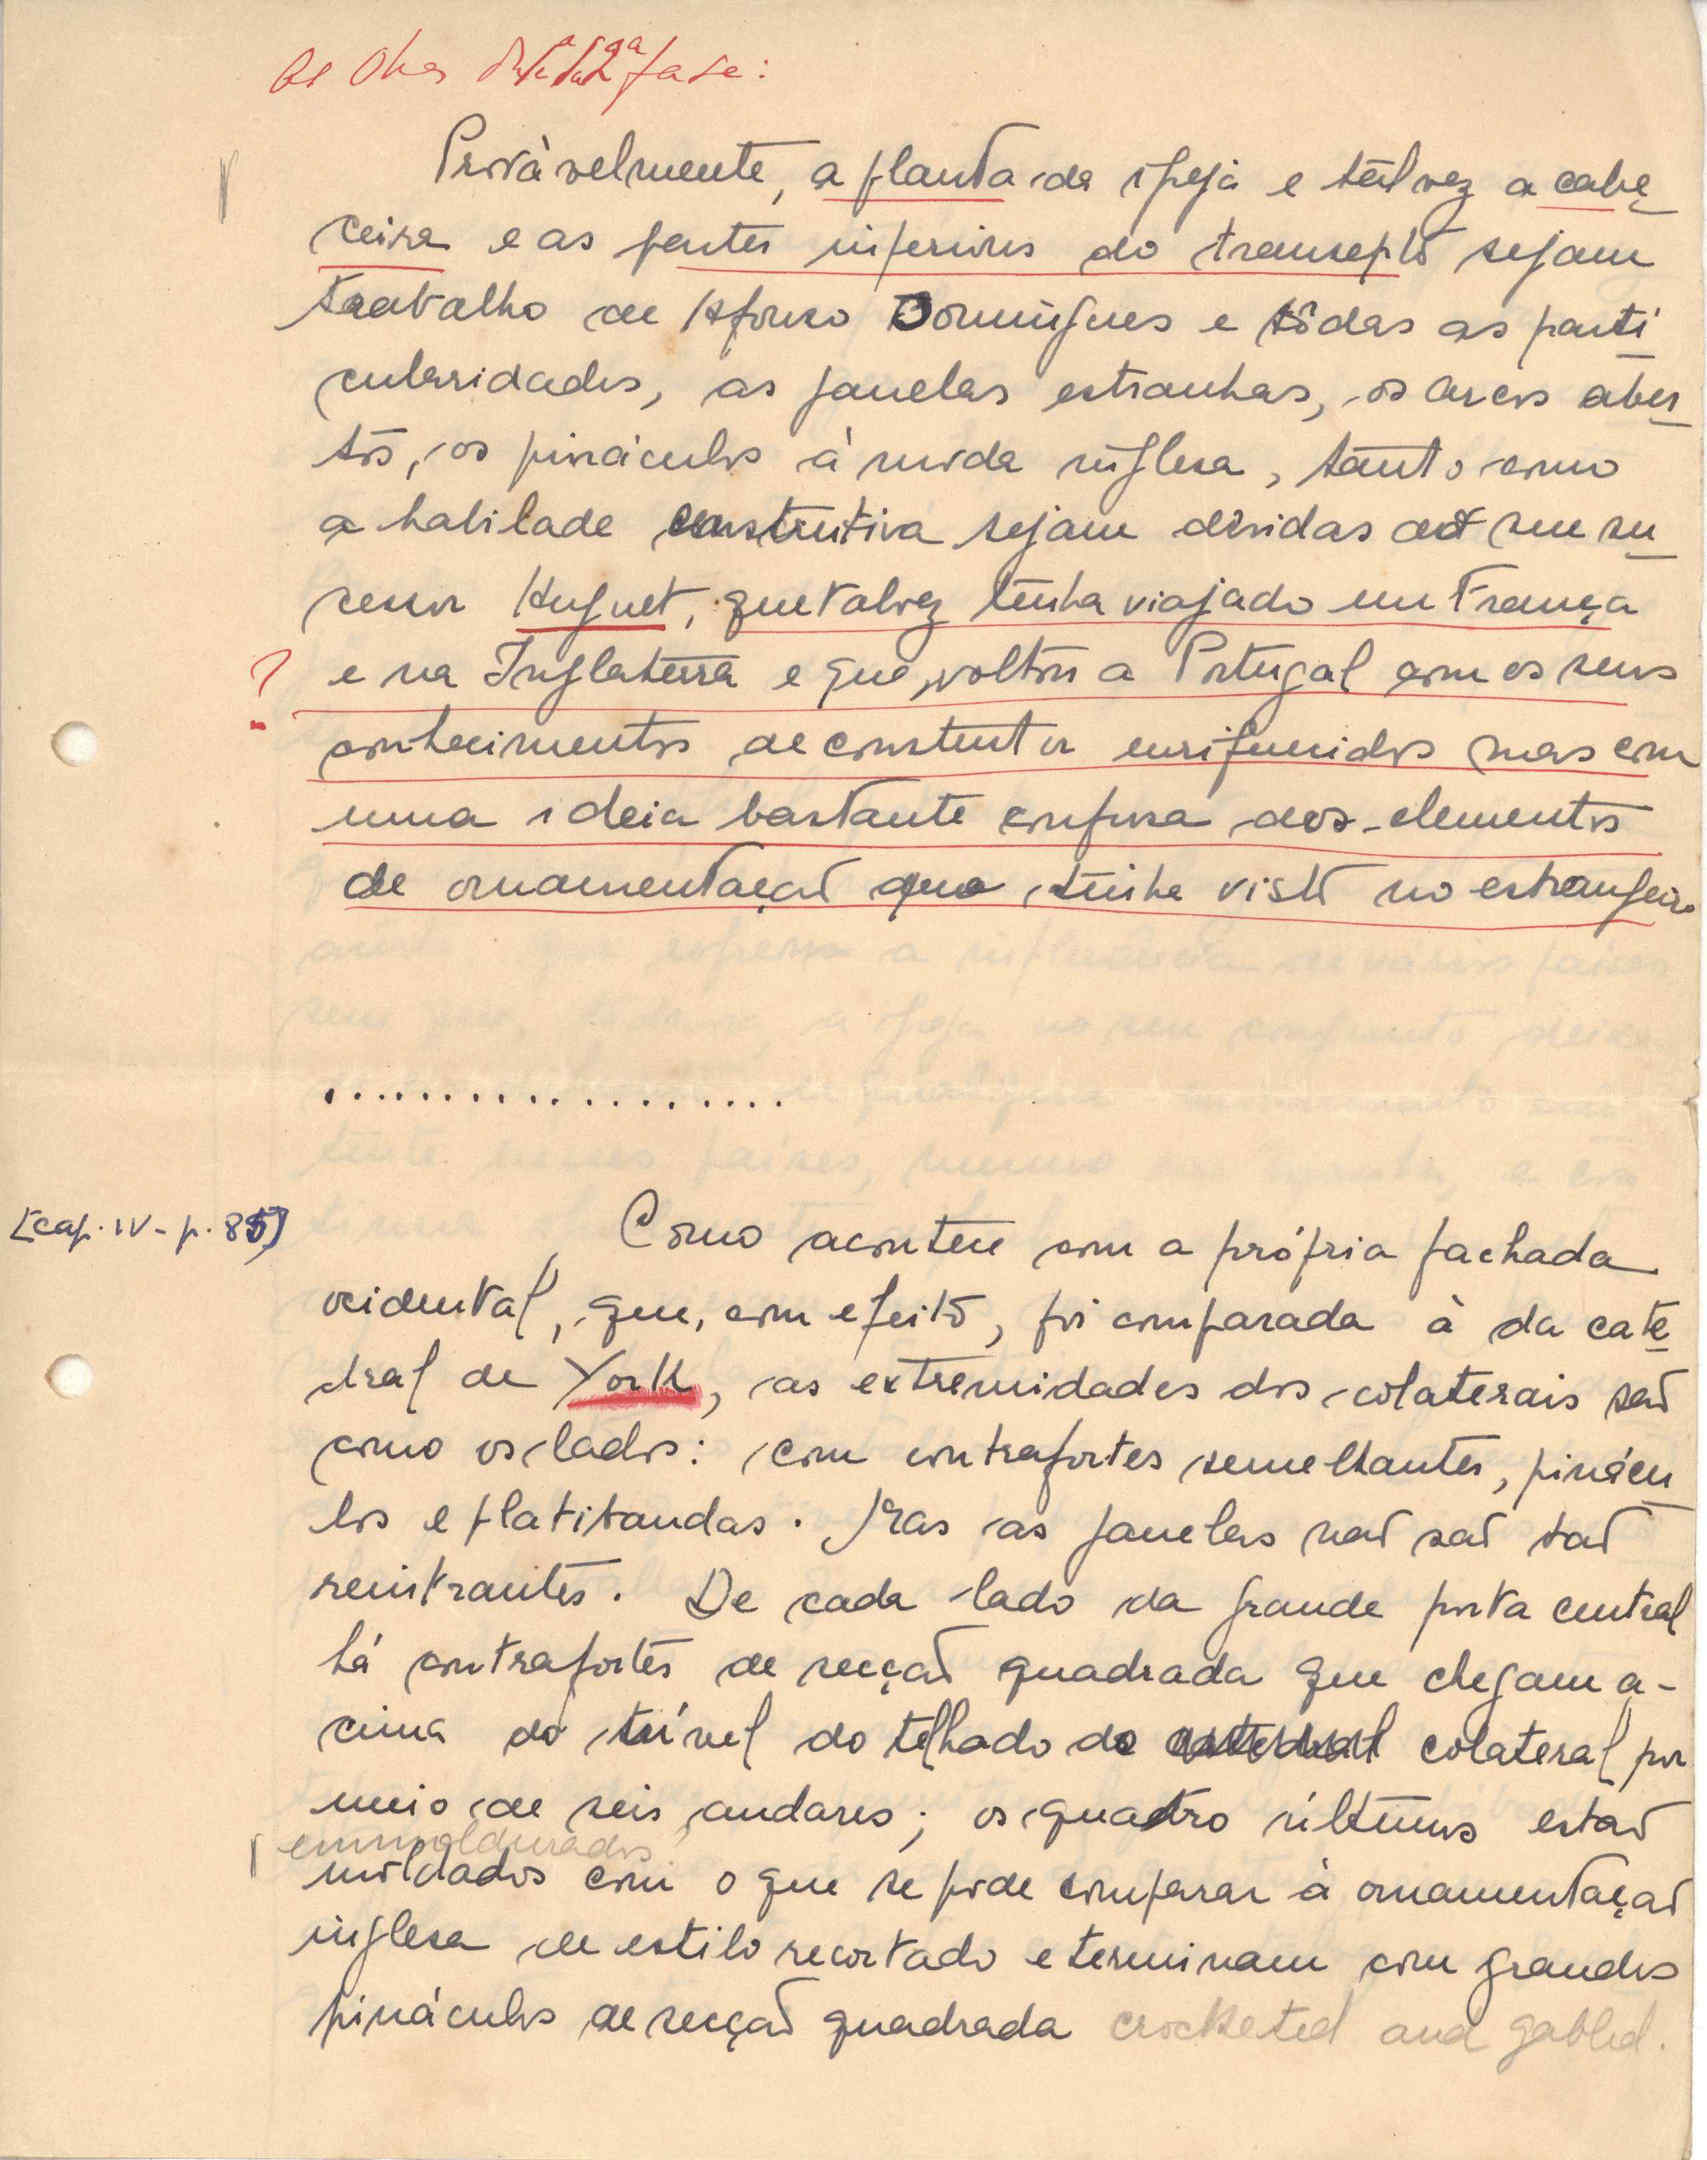 fase:
Provàvelmente, a planta da igreja e talvez a cabe
ceira e as partes inferiores do transepto sejam
trabalho de Afonso Domingues e tôdas as parti
cularidades, as janelas estranhas, os arcos aber
tos, os pináculos à moda inglesa, tanto como
a habilade construtiva sejam devidas ao seu su
cessor Huguet, que talvez tenha viajado em França
? e na Inglaterra e que, voltou a Portugal com os seus
conhecimentos de construtor enrijecidos mas com
uma ideia bastante confusa dos elementos
de ornamentação que tinha visto no estrangeiro
...................
[cap. IV - p. 85]
Como acontece com a própria fachada
ocidental, que, com efeito, foi comparada à da cate
dral de York, as extremidades dos colaterais são
como os lados: com contrafortes semelhantes, pinácu
los e platibandas. Mas as janelas não são tão
reintrantes. De cada lado da grande porta central
há contrafortes de secção quadrada que chegam a-
cima do nível do telhado do colateral por
meio de seis andares; os quatro últimos estão
emmoldurados
moldados com o que se pode comparar à ornamentação
inglesa de estilo recortado e terminam com grandes
pináculos de secção quadrada crocketed and gabled.